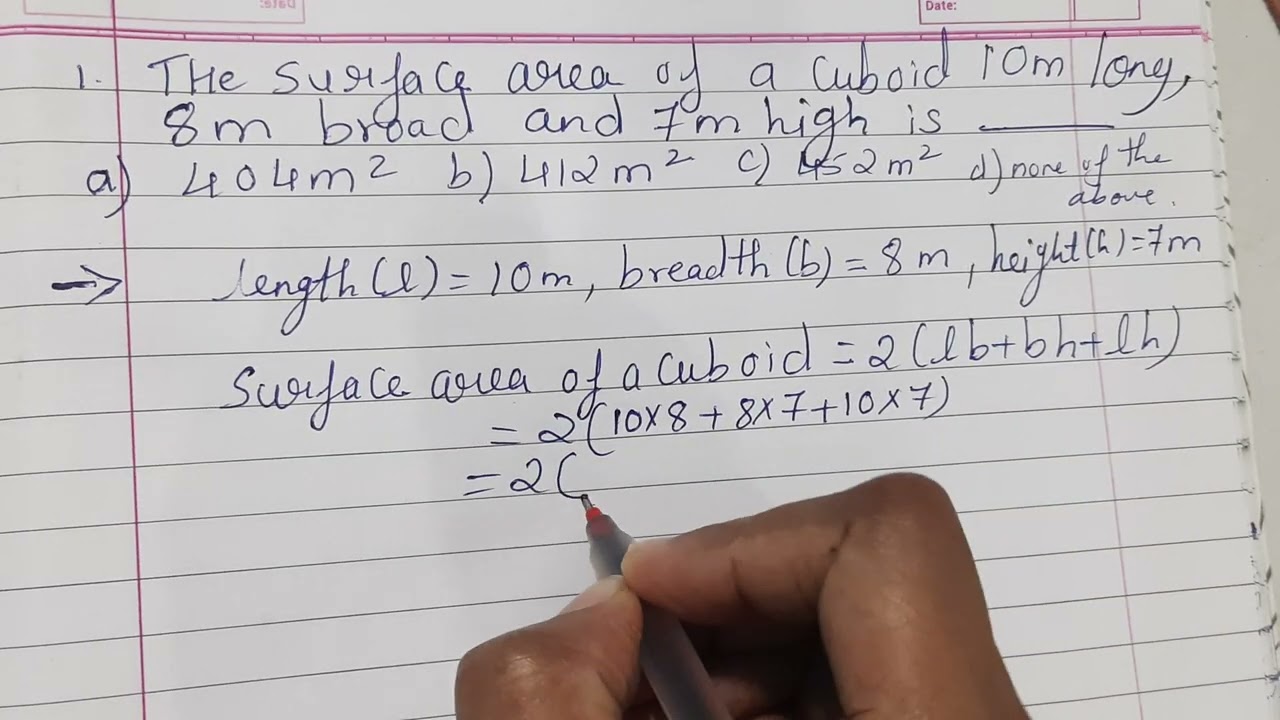 Date:
1. THe surface area of a cuboid 10m long,
8m broad and 7m high is ______
a) 404m² b) 412m² c) 452m² d) none of the
above.
→ length(l) = 10m, breadth(b) = 8m, height(h) = 7m
Surface area of a cuboid = 2(lb+bh+lh)
= 2(10×8 + 8×7 + 10×7)
= 2(